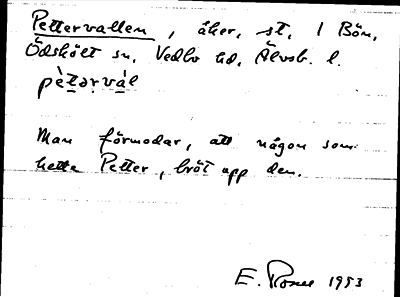 Pettervallen, åker, st. 1 Bön,
Ödskölt sn. Vedbo hd. Älvsb. l.
pètərvàl
Man förmodar, att någon som
hette Petter, bröt upp den.
E. Rosell 1953